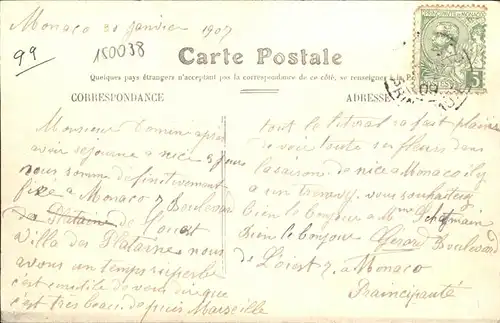 Monaco 30 janvier 1907
99
150038
PRINCIPAUTÉ DE MONACO
5
Carte Postale
Quelques pays étrangers n'acceptant pas la correspondance de ce côté, se renseigner à la P
CORRESPONDANCE
ADRESSE
Monsieur apres
avoir séjourné a nice 5 jours
nous somme definitivement
fixé a Monaco 7 Boulevard
de l'ouest
villa des Platanes nous
avons un temps superbe
c'est inutile de vous dire que
c'est tres beau depuis Marseille
tout le litoral sa fait plaisir
de voir toute ses fleurs dans
la saison. de nice a Monaco il y
a un tramway. vous souhaiter
bien le bonjour a Mme
Bien le bonjour Gerard Boulevard
de l'ouest 7. a Monaco
Principauté